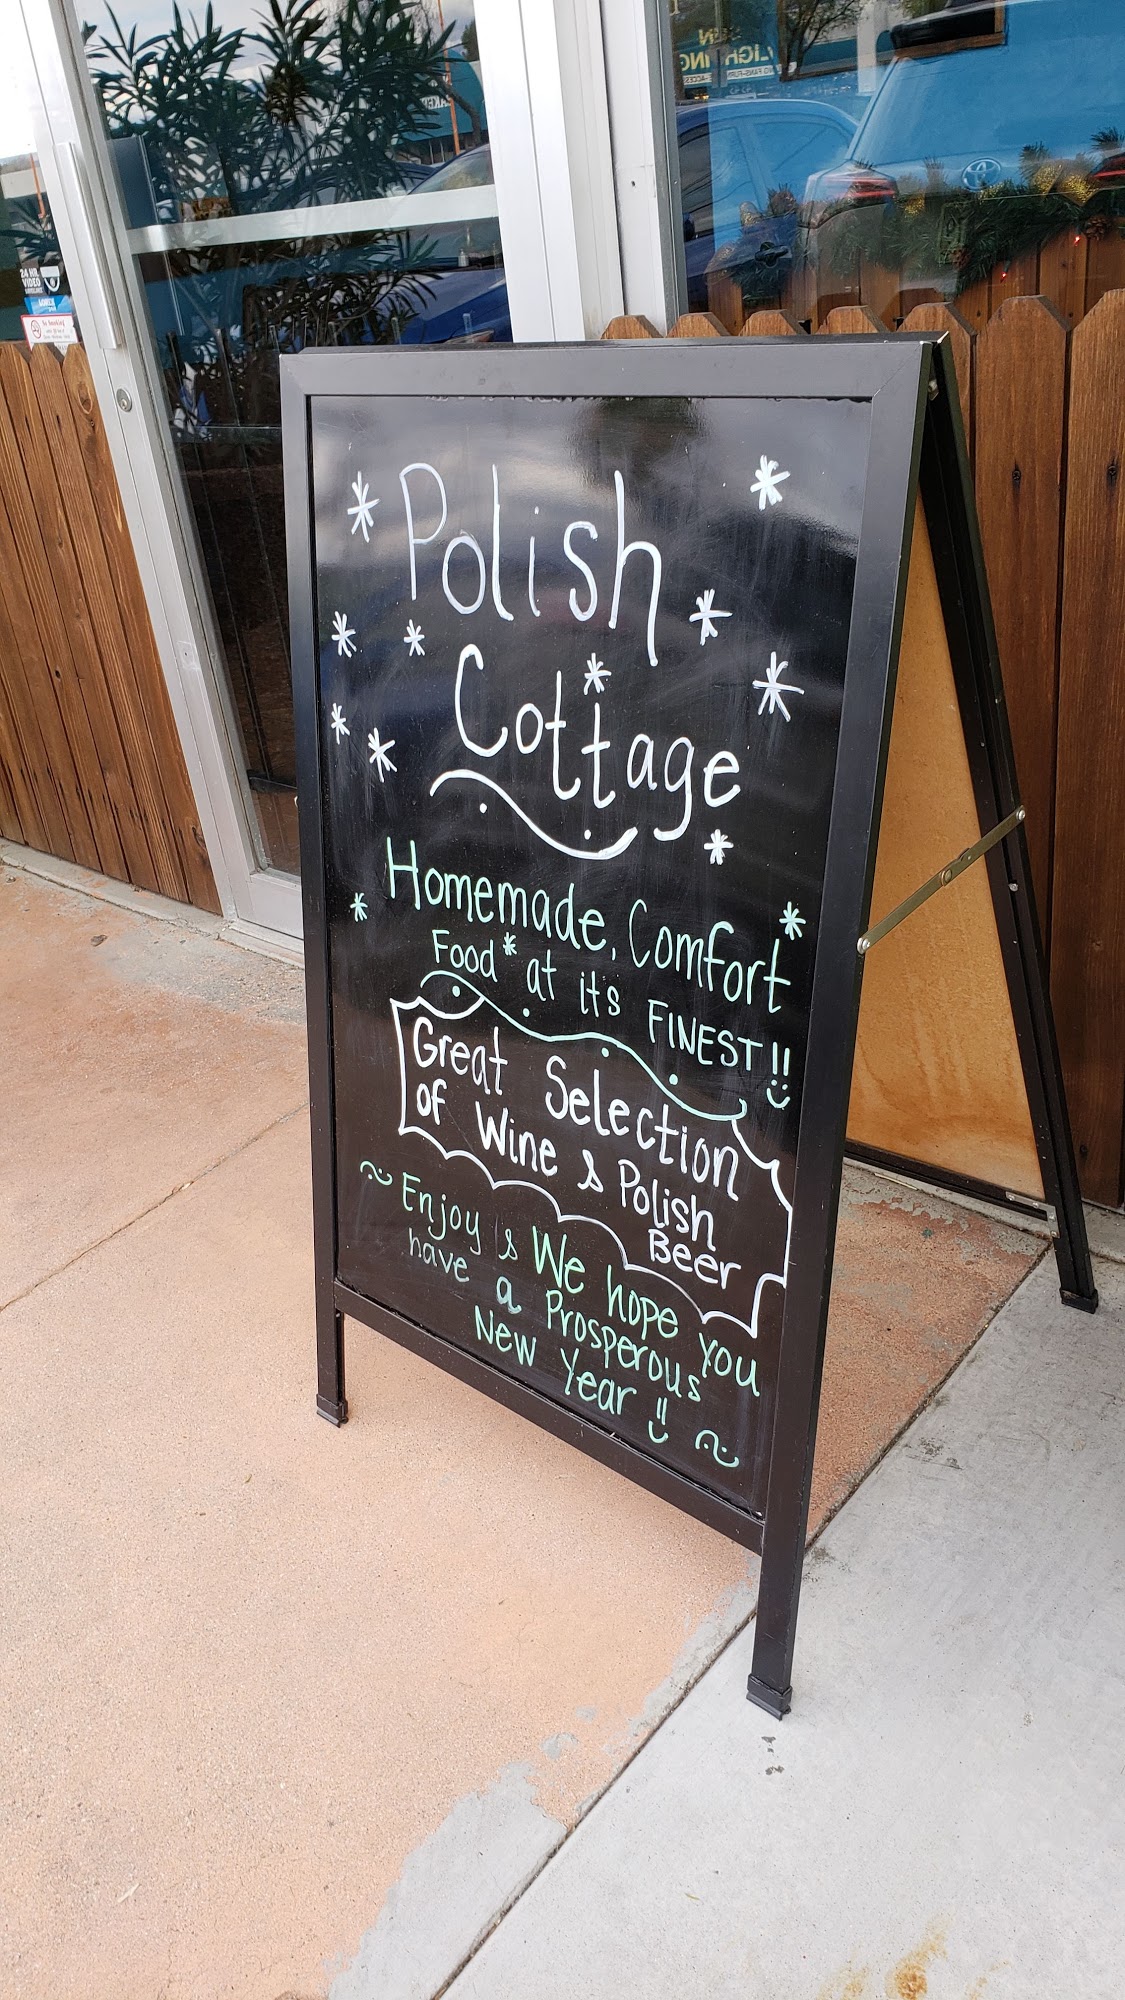 Polish
Cottage
Homemade, Comfort
Food at it's FINEST!!
Great Selection
of Wine & Polish
Beer
Enjoy & We hope you
have a Prosperous
New Year !!
24 HR
VIDEO
No Smoking
SUN
LIGHTING